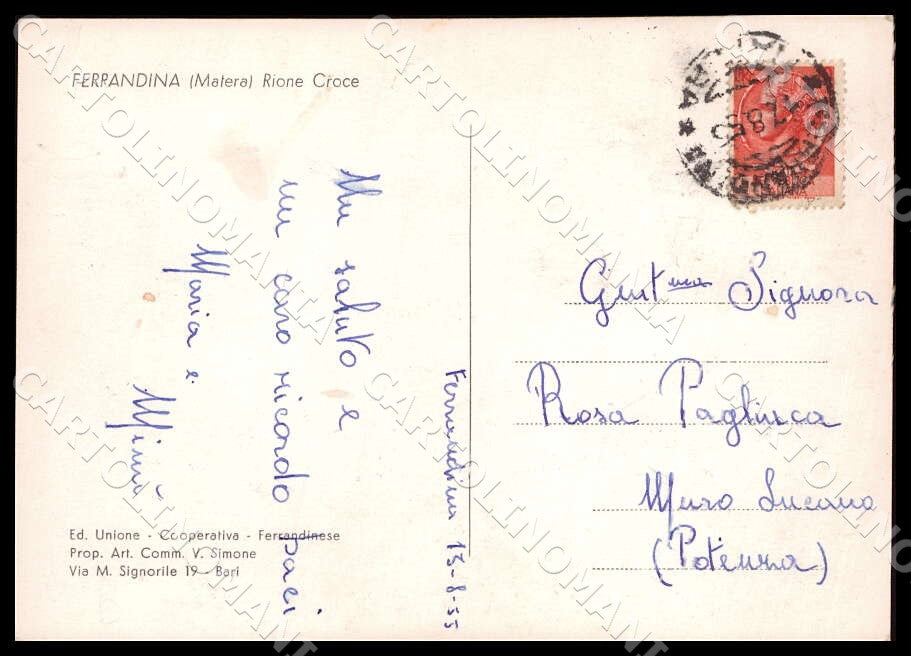 FERRANDINA (Matera) Rione Croce
Un saluto e
un caro ricordo
Maria e Mimì
Ferrandina 13-8-55
Ed. Unione - Cooperativa - Ferrandinese
Prop. Art. Comm. V. Simone
Via M. Signorile 19 - Bari
Gent.ma Signora
Rosa Pagliuca
Muro Lucano
(Potenza)
CARTOLINOMANIA